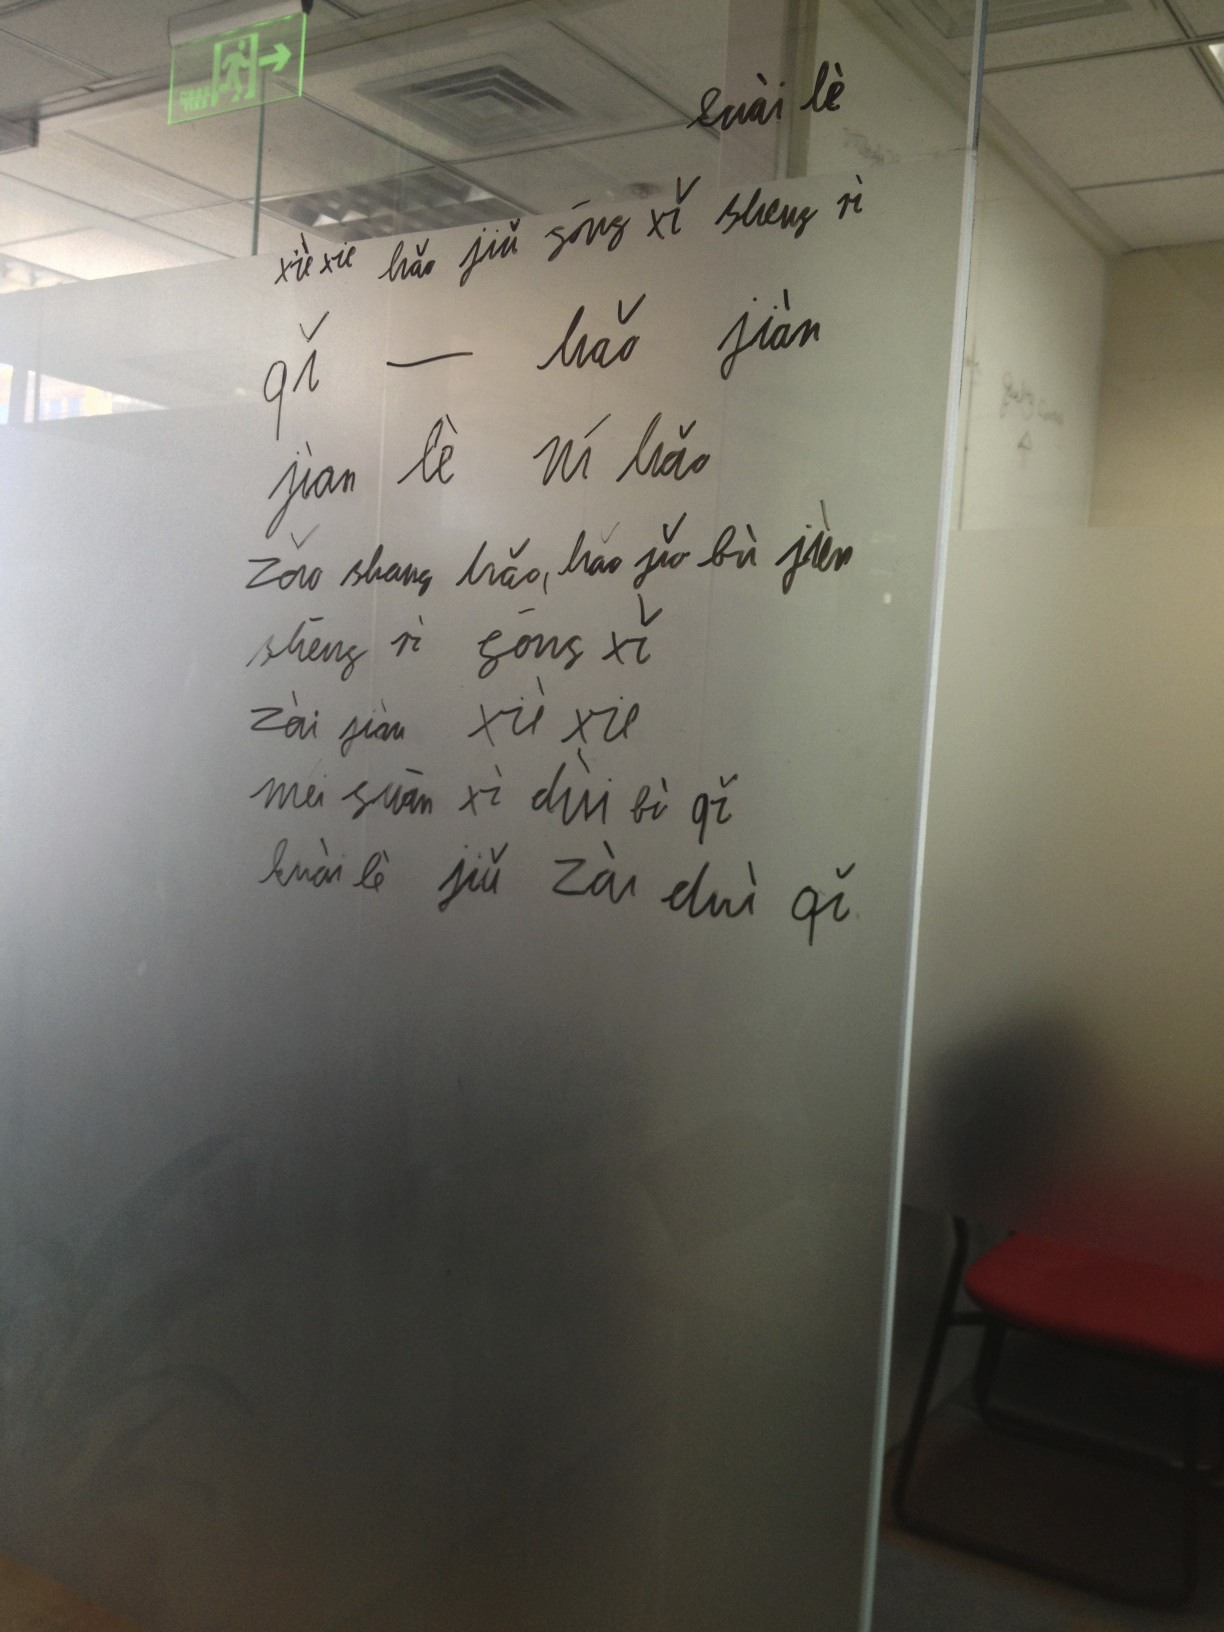 kuài lè
xièxie hǎo jiǔ gōng xǐ sheng rì
qǐ — hǎo jiàn
jìan lè ní hǎo
zǎo shang hǎo, hǎo jiǒ bù jièn
shēng rì gōng xǐ
zài jiàn xiè xie
mei guān xì dùi bì qǐ
kuài lè jiǔ zài duì qǐ